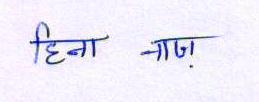 हिना नाज़